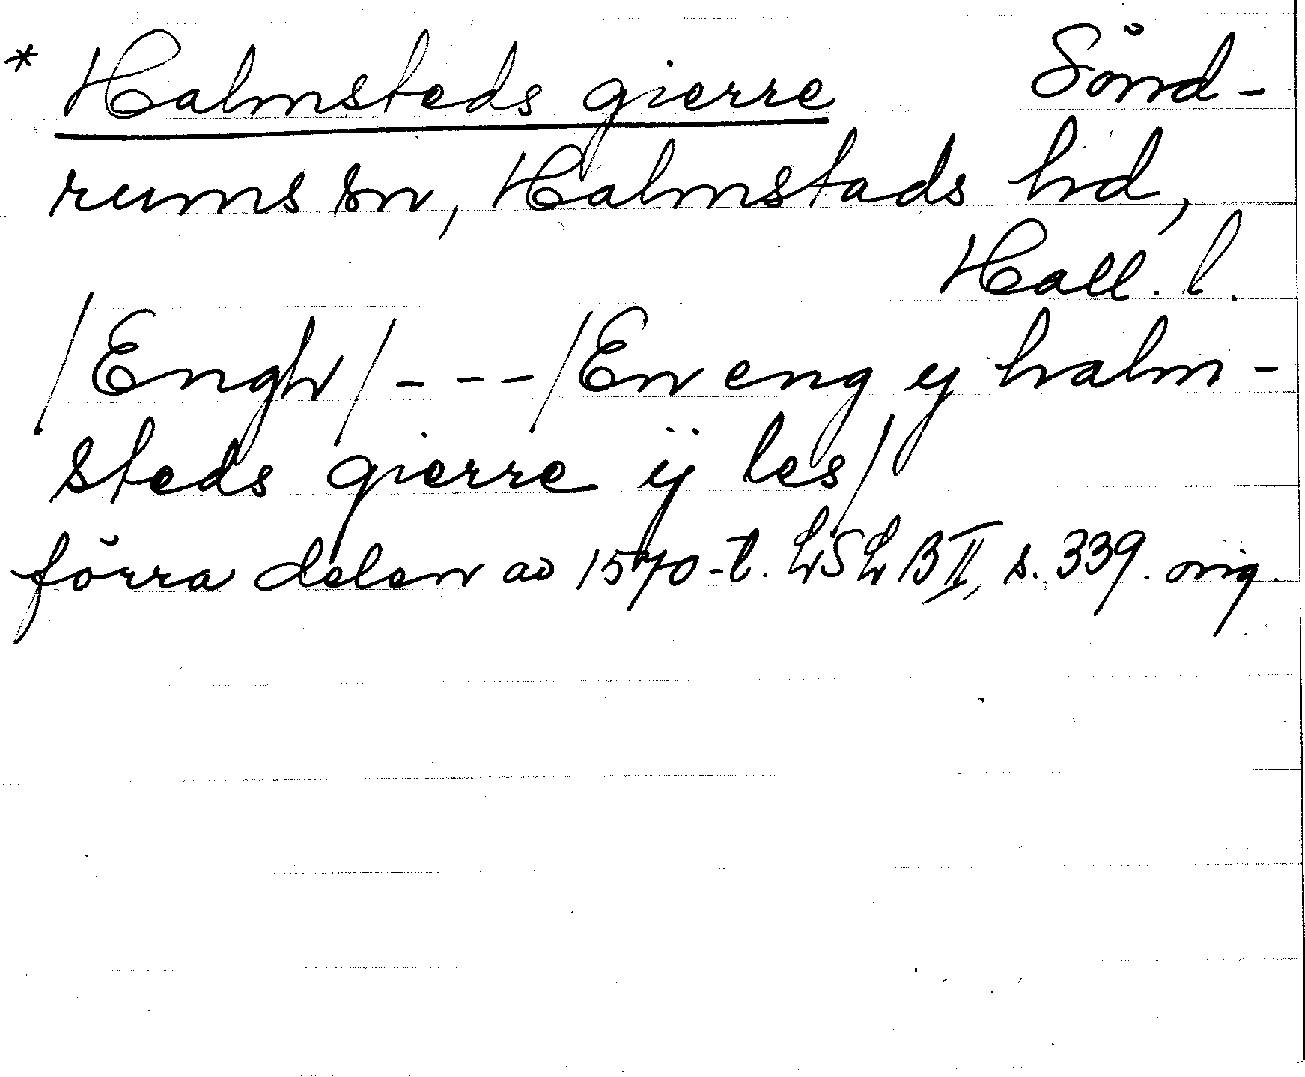 * Halmsteds gierre Sönd-
rums sn, Halmstads hd,
Hall. l.
/Engh/---/En eng y halm-
steds gierre ij les/
förra delen av 1570-t. LSLB II, s. 339. orig.